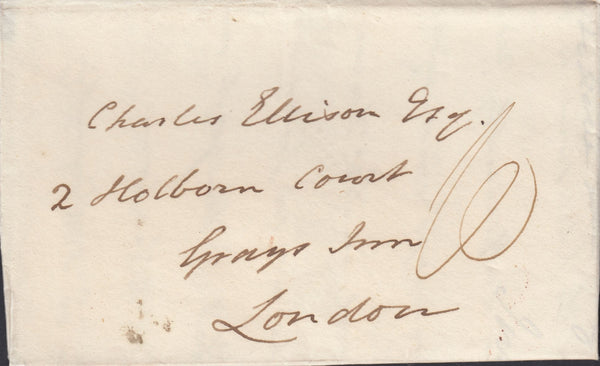 Charles Ellison Esq.
2 Holborn Court
Grays Inn
London
6